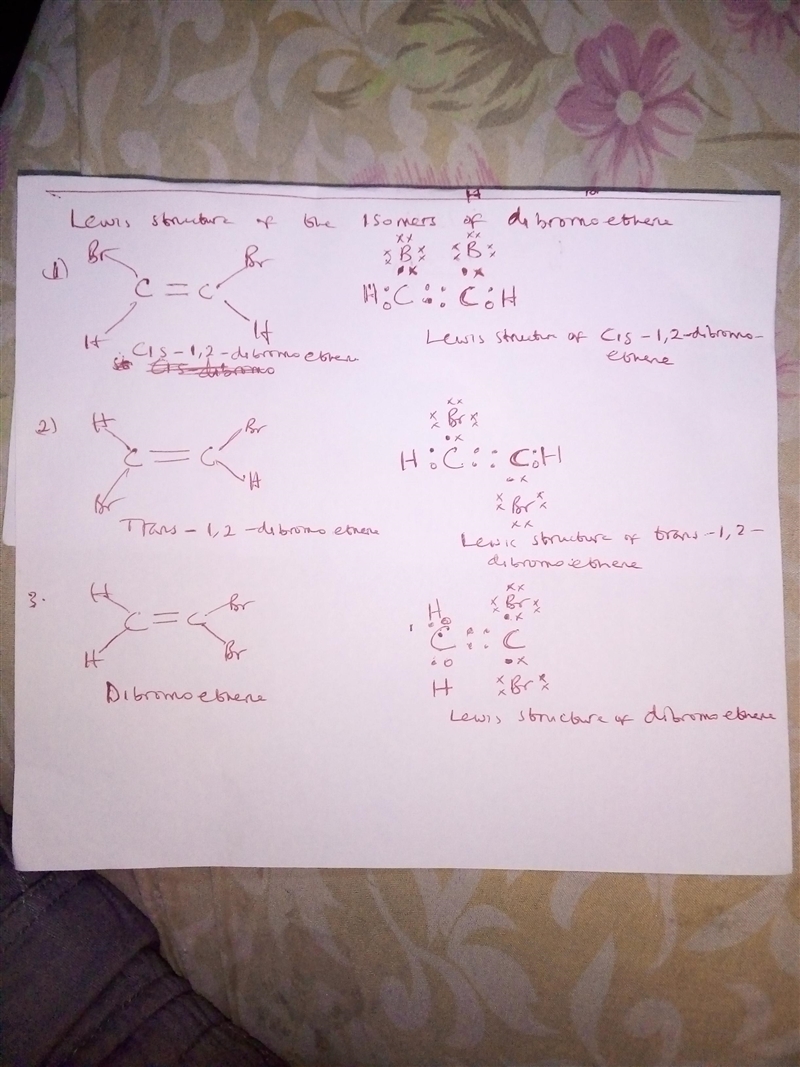 Lewis structure of the Isomers of dibromoethene
1)
Br Br
C = C
H H
Cis-1,2-dibromoethene
Cis-dibromo
B B
H C C H
Lewis structur of Cis-1,2-dibromo-
ethene
2)
H Br
C = C
Br H
Trans-1,2-dibromoethene
Br
H C C H
Br
Lewis structure of trans-1,2-
dibromoethene
3.
H Br
C = C
H Br
Dibromoethene
H Br
C C
H Br
Lewis structure of dibromoethene